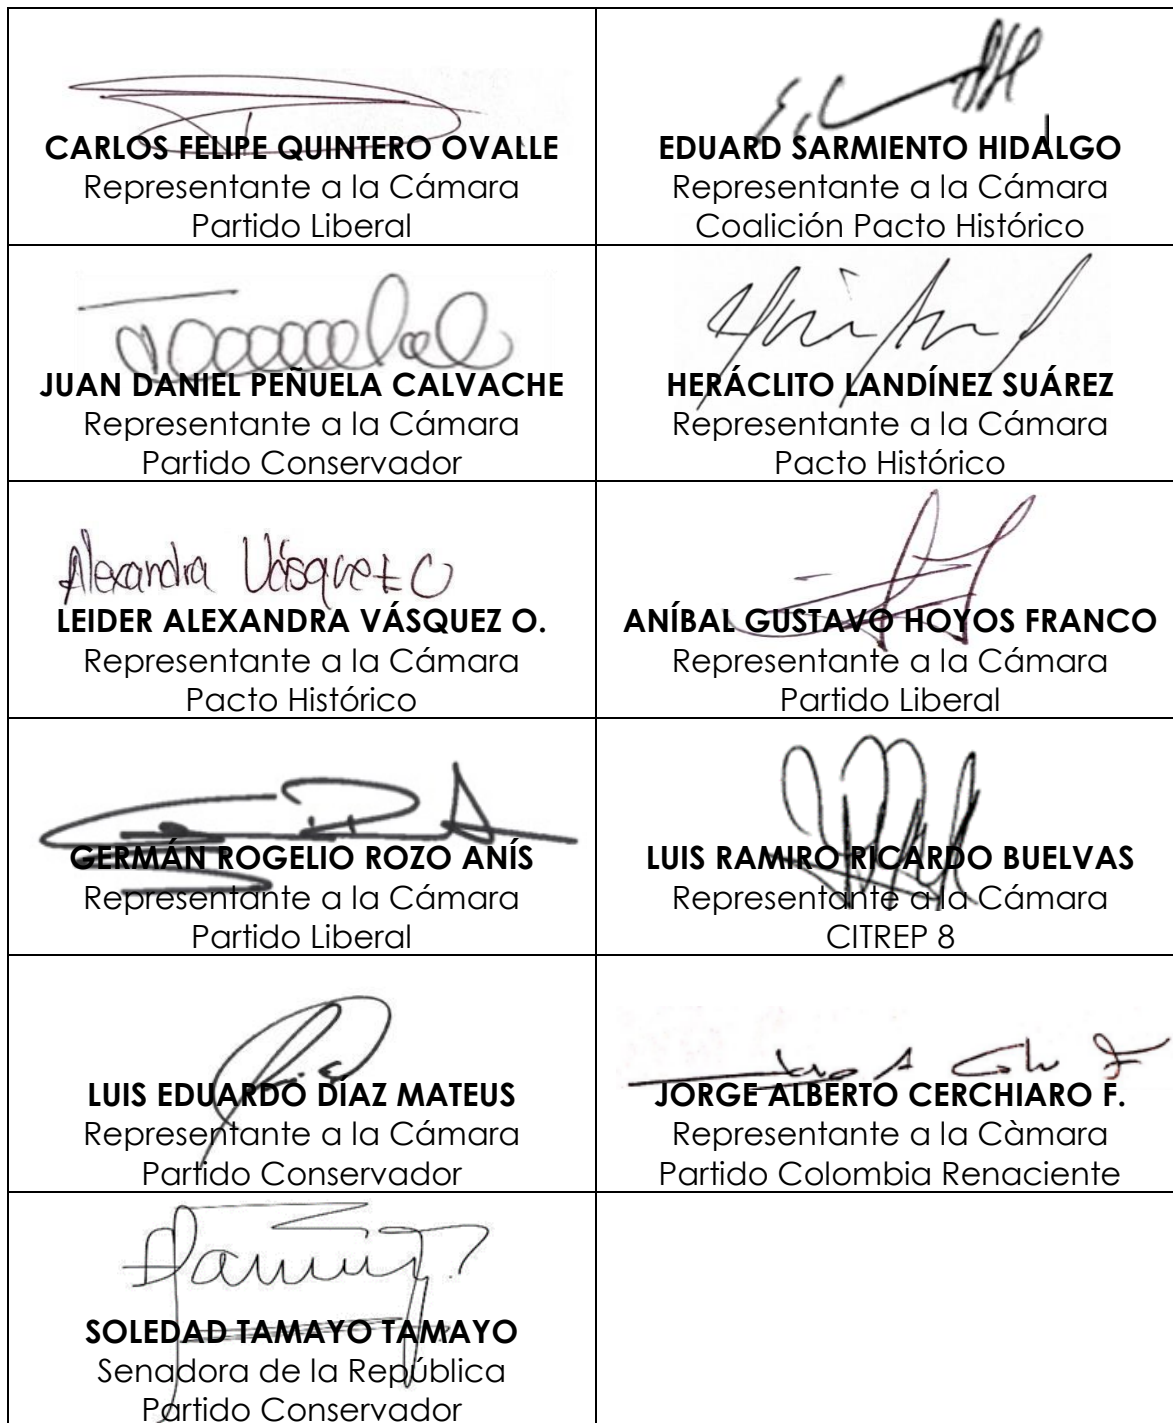 CARLOS FELIPE QUINTERO OVALLE
Representante a la Cámara
Partido Liberal
EDUARD SARMIENTO HIDALGO
Representante a la Cámara
Coalición Pacto Histórico
JUAN DANIEL PEÑUELA CALVACHE
Representante a la Cámara
Partido Conservador
HERÁCLITO LANDÍNEZ SUÁREZ
Representante a la Cámara
Pacto Histórico
Alexandra Vásquez O
LEIDER ALEXANDRA VÁSQUEZ O.
Representante a la Cámara
Pacto Histórico
ANÍBAL GUSTAVO HOYOS FRANCO
Representante a la Cámara
Partido Liberal
GERMÁN ROGELIO ROZO ANÍS
Representante a la Cámara
Partido Liberal
LUIS RAMIRO RICARDO BUELVAS
Representante a la Cámara
CITREP 8
LUIS EDUARDO DÍAZ MATEUS
Representante a la Cámara
Partido Conservador
JORGE ALBERTO CERCHIARO F.
Representante a la Càmara
Partido Colombia Renaciente
SOLEDAD TAMAYO TAMAYO
Senadora de la República
Partido Conservador